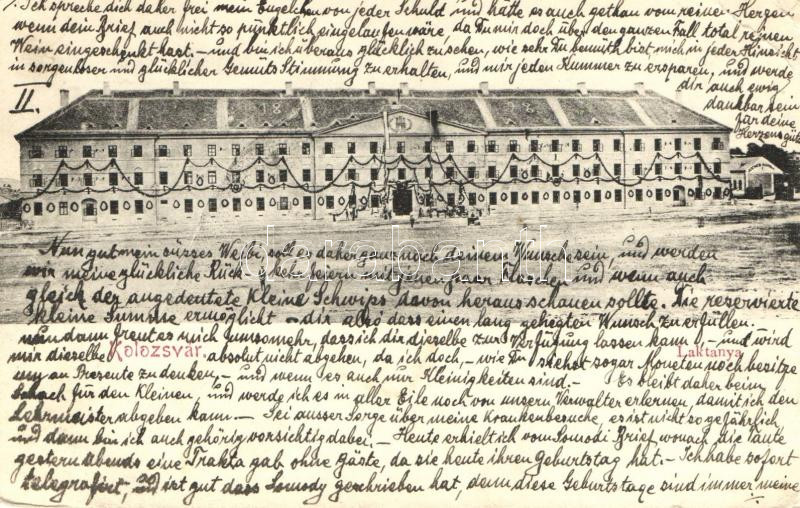 1. Ich spreche dich daher frei mein Engelchen von jeder Schuld und hätte es auch gethan von reinen Herzen
wenn dein Brief auch nicht so pünktlich eingelaufen wäre, da Du mir doch über den ganzen Fall total reinen
Wein eingeschenkt hast. – und bin ich überaus glücklich zu sehen, wie sehr Du bemüht bist mich in jeder Hinsicht
in sorgenloser und glücklicher Gemüts Stimmung zu erhalten, und mir jeden Kummer zu ersparen, und werde
dir auch ewig
dankbar sein
für deine
Herzensgüte
II.
18 96
Nun gut mein süsses Weibi, soll es daher ganz nach deinem Wunsche sein, und werden
wir meine glückliche Rückkehr feiern mit einen paar Flaschen und wenn auch
gleich der angedeutete kleine Schwips davon heraus schauen sollte. Die reservierte
kleine Summe ermöglicht – dir also dass einen lang gehegten Wunsch zu erfüllen.
nun dann freut es mich umsomehr, dass ich dir dieselbe zur Verfügung lassen kann, – und wird
mir dieselbe absolut nicht abgehen, da ich doch, – wie Du siehst sogar Moneten noch besitze
um an Presente zu denken, – und wenn es auch nur Kleinigkeiten sind. – Es bleibt daher beim
Kolozsvár.
Laktanya
Schach für den Kleinen, und werde ich es in aller Eile noch von unsern Verwalter erlernen, damit ich den
Lehrmeister abgeben kann. – Sei ausser Sorge über meine Krankenbesuche, es ist nicht so gefährlich
und dann bin ich auch gehörig vorsichtig dabei. – Heute erhielt ich vom Somodi Brief wonach die Tante
gestern abends eine Trakta gab ohne Gäste, da sie heute ihren Geburtstag hat. – Ich habe sofort
telegrafirt, und ist gut dass Somody geschrieben hat, denn diese Geburtstage sind immer meine